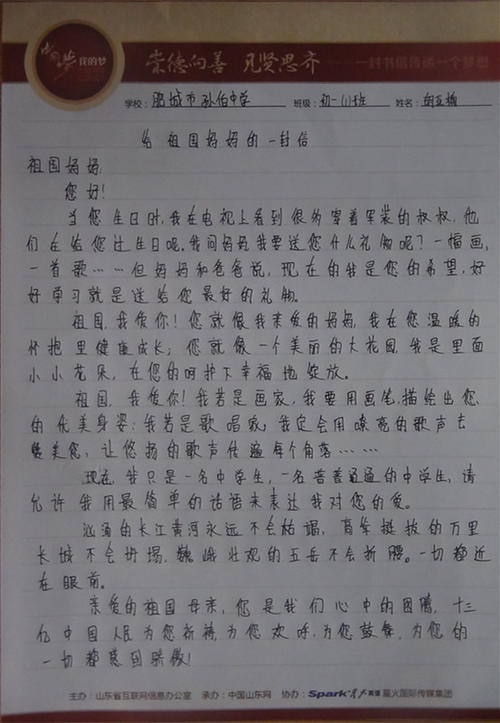 中国梦 我的梦
崇德向善 见贤思齐 一封书信传递一个梦想
学校：肥城市孙伯中学 班级：初一(1)班 姓名：
给祖国妈妈的一封信
祖国妈妈：
您好！
当您生日时，我在电视上看到很多穿着军装的叔叔，他
们在给您过生日呢，我问妈妈我要送您什么礼物呢？一幅画，
一首歌……但妈妈和爸爸说，现在的我是您的希望，好
好学习就是送给您最好的礼物。
祖国，我爱你！您就像我亲爱的妈妈，我在您温暖的
怀抱里健康成长；您就像一个美丽的大花园，我是里面
小小花朵，在您的呵护下幸福地绽放。
祖国，我爱你！我若是画家，我要用画笔，描绘出您
的优美身姿；我若是歌唱家，我定会用嘹亮的歌声去
赞美您，让您扬的歌声传遍每个角落……
现在，我只是一名中学生，一名普普通通的中学生，请
允许我用最简单的话语来表达我对您的爱。
汹涌的长江黄河永远不会枯竭，高耸挺拔的万里
长城不会坍塌，巍峨壮观的五岳不会折腰。一切都近
在眼前。
亲爱的祖国母亲，您是我们心中的图腾，十三
亿中国人民为您祈祷，为您欢呼，为您鼓舞，为您的
一切都感到骄傲！
主办：山东省互联网信息办公室 承办：中国山东网 协办：Spark 星火国际传媒集团